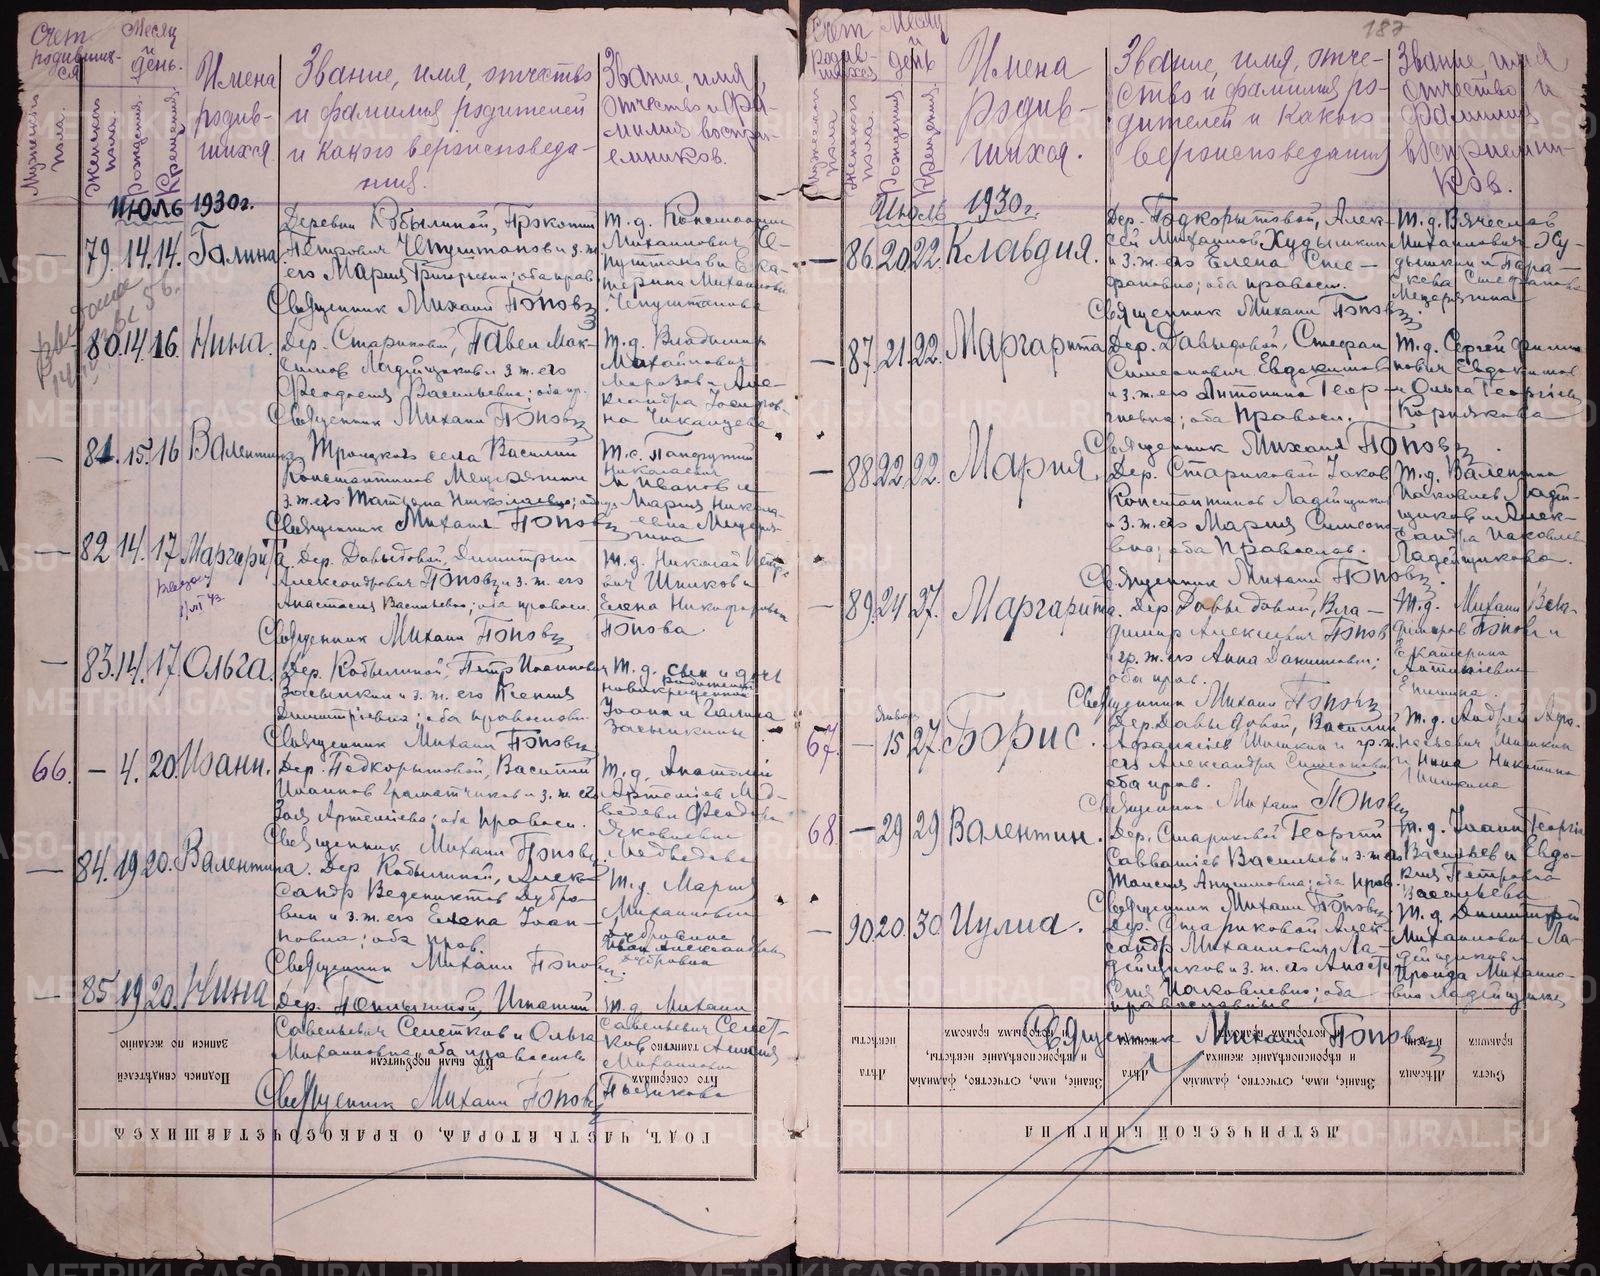 Счет родивших-ся
Месяц и день.
Мужеского пола.
Женского пола.
Рождения.
Крещения.
Имена родив-шихся
Звание, имя, отчество
и фамилия родителей
и какого вероисповеда-
ния.
Звание, имя
отчество и фа-
милия воспри-
емников.
Июль 1930 г.
— 79. 14. 14. Галина
Деревни Кобылиной, Прокопий
Петрович Чепуштанов и з. ж.
его Мария Григорьевна; оба прав.
Священник Михаил Поповъ
т. д. Константин
Михаилович Че-
пуштанов и Ека-
терина Михаиловна
Чепуштанова
— 80. 14. 16. Нина.
Дер. Стариковой, Павел Мак-
симов Ладейщиков и з. ж. его
Феодосия Васильевна; оба пр.
Священник Михаил Поповъ
т. д. Владимир
Михайлович
Морозов и Але-
ксандра
— 81. 15. 16 Валентина
Троицкого села Василий
Константинов Мещерягин и
з. ж. его Татьяна Николаевна;
Священник Михаил Поповъ
Николаевич
Иванов и
Мария Никола-
евна Мещеря-
гина
— 82 14. 17. Маргарита
Дер. Давыдовой, Димитрий
Александрович Поповъ и з. ж. его
Анастасия Васильевна; оба правосл.
Священник Михаил Поповъ
т. д. Николай Петро-
вич Шишков и
Елена Никифоровна
Попова
— 83. 14. 17. Ольга.
Дер. Кобылиной, Петр Иоаннович
Засыпкин и з. ж. его Ксения
Димитриевна; оба православн.
Священник Михаил Поповъ
т. д. сын и дочь
родителей
новокрещенной
Иоанн и Галина
Засыпкины
66. — 4. 20. Иоанн.
Дер. Подкорытовой, Василий
Иоаннов Грамотчиков и з. ж. его
Зоя Артемиева; оба правосл.
Священник Михаил Поповъ
т. д. Анатолий
Артемиев Мед-
ведев и Феодосия
Яковлевна
Медведева
— 84. 19 20. Валентина.
Дер. Кобылиной, Алек-
сандр Бедениктов Дубро-
вин и з. ж. его Елена Иоан-
новна; оба прав.
Священник Михаил Поповъ
т. д. Мария
Михаиловна
Иван Александрович
Дубровин
— 85 19 20. Нина
Дер. Игнатий
Савельевич Селетков и Ольга
Михаиловна оба православн.
Священник Михаил Поповъ
т. д. Михаил
Савельевич Селет-
ков
Михаиловна
Записи по желанiю
Подпись свидѣтелей
Кто были поручители
Кто совершалъ таинство
годъ, часть вторая, о бракосочетавшихся
187
Счет родив-шихся
Месяц и день
Мужеского пола
Женского пола.
Рождения
Крещения.
Имена
родив-
шихся.
Звание, имя, отче-
ство и фамилия ро-
дителей и какого
вероисповедания
Звание, имя
отчество и
фамилия
восприемни-
ков.
Июль 1930 г.
— 86. 20 22. Клавдия.
Дер. Подкорытовой, Алек-
сей Михаилов Худышкин
и з. ж. его Елена Сте-
фановна; оба правосл.
Священник Михаил Поповъ
т. д. Вячеслав
Михаилович Ху-
дышкин и Пара-
скева Стефановна
Мещерягина
— 87. 21. 22. Маргарита
Дер. Давыдовой, Стефан
Симеонович Евдокимов
и з. ж. его Антонина Геор-
гиевна; оба правосл.
Священник Михаил Поповъ
т. д. Сергей Филип-
пович Евдокимов
и Ольга Георгиев
Корнякова
— 88. 22 22. Мария
Дер. Стариковой Иаков
Константинов Ладейщиков
и з. ж. его Мария Симеоно-
вна; оба православ.
Священник Михаил Поповъ.
т. д. Валентин
Иаковлев Ладей-
щиков и Алек-
сандра Иаковлев
Ладейщикова.
— 89. 24 27. Маргарита.
Дер Давыдовой, Вла-
димир Алексиевич Попов
и гр. ж. его Анна Данииловна;
оба прав.
Священник Михаил Поповъ
т. д. Михаил
Попов и
Екатерина
67. — Января 15 27. Борис.
Дер. Давыдовой, Василий
Афанасиев Шишкин и гр. ж.
его Александра Симеоновна
оба прав.
Священник Михаил Поповъ
т. д. Андрей Афа-
насьевич Шишкин
и Нина Никитина
Шишкина
68. — 29 29 Валентин.
Дер. Стариковой Георгий
Савватиев Васильев и з. ж. его
Таисия Анисимовна; оба прав.
Священник Михаил Поповъ
т. д. Иоанн Георги
Васильев и Евдо-
кия Петровна
Васильева
— 90. 20. 30 Иулиа.
Дер. Стариковой Алек-
сандр Михаилович Ла-
дейщиков и з. ж. его Анаста-
сия Иаковлевна; оба
православные
Священник Михаил Поповъ
т. д. Димитрий
Михаилович Ла-
дейщиков и
Ираида Михаило-
вна Ладейщикова
Счетъ браковъ
Мѣсяцъ и день
Званіе, имя, отчество, фамилія и вѣроисповѣданіе жениха и которымъ бракомъ
Лѣта жениха
Званіе, имя, отчество, фамилія и вѣроисповѣданіе невѣсты, и которымъ бракомъ
Лѣта невѣсты
Метрической книги на
METRIKI.GASO-URAL.RU